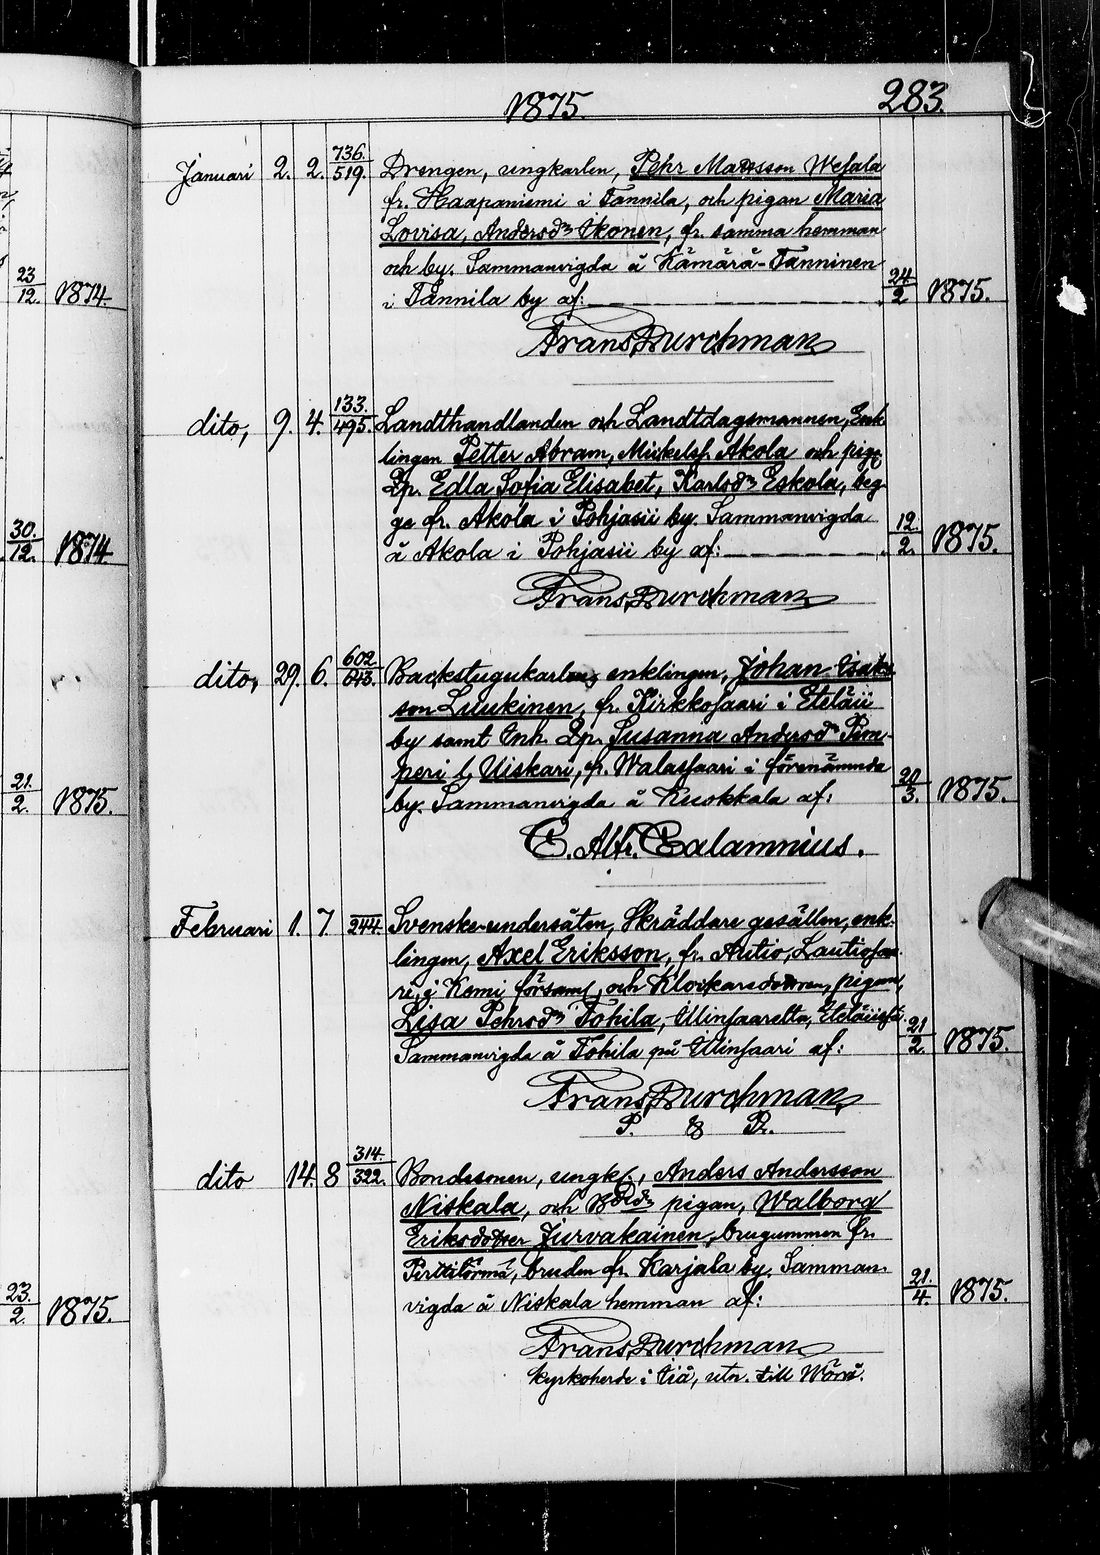 1875.
283.
Januari 2. 2. 736. 519. Drengen, ungkarlen, Pehr Matsson Wesala
fr. Haapaniemi i Tannila, och pigan Maria
Lovisa, Andersdr Ikonen, fr. samma hemman
och by. Sammanvigda å Kämärä-Tanninen
i Tannila by af:
24 2 1875.
23 12. 1874.
Frans Durchman
dito, 9. 4. 133. 495. Landthandlanden och Landtdagsmannen, Enk-
lingen Petter Abram, Mickelss. Akola och pig.
Dp. Edla Sofia Elisabet, Karlsdr Eskola, beg-
ge fr. Akola i Pohjasii by. Sammanvigda
å Akola i Pohjasii by af:
12. 2. 1875.
30. 12. 1874.
Frans Durchman
dito, 29. 6. 602. 643. Backstugukarlen, enklingen, Johan Isaks
son Luukinen, fr. Kirkkosaari i Eteläii
by samt Inh. Dp. Susanna Andersdr Pem-
peri l. Uiskari, fr. Walassaari i förenämnde
by. Sammanvigda å Kuokkala af:
20 3. 1875.
21. 2. 1875.
C. Alfr. Calamnius.
Februari 1. 7. 244. Svenske-undersåten, Skräddare gesällen, enk-
lingen, Axel Eriksson, fr. Autio, Lautiosaa-
ri, i Kemi församl, och Klockaredottren, pigan,
Lisa Pehrsdr Tohila, Illinsaarelta,
Sammanvigda å Tohila på Illinsaari af:
21 2. 1875.
Frans Durchman
P. & Pr.
dito 14. 8 314. 322. Bondesonen, ungk, Anders Andersson
Niskala, och Bdedr pigan, Walborg
Eriksdotter Jurvakainen, brugummen fr.
Perttitörmä, bruden fr. Karjala by. Samman-
vigda å Niskala hemman af:
21. 4. 1875.
23. 2. 1875.
Frans Durchman
Kyrkoherde i Iiå, utn. till Wörå.